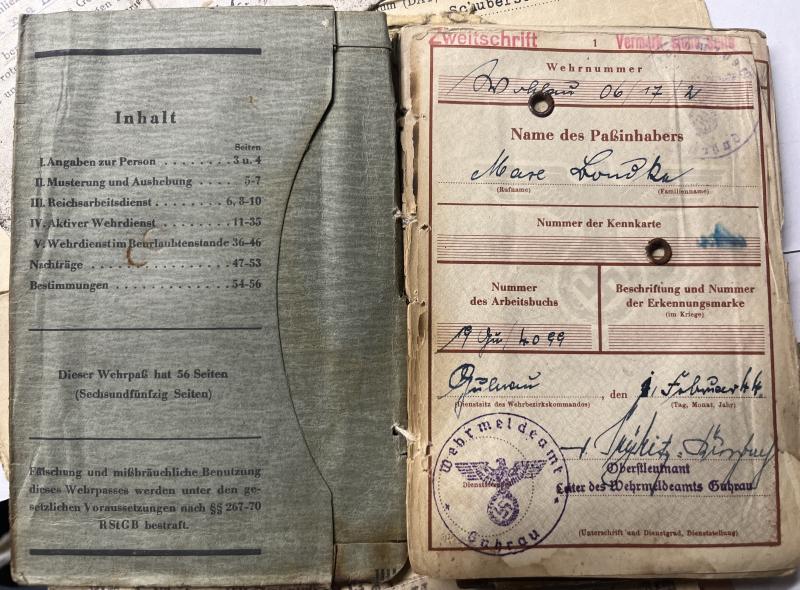 Schubers
Inhalt
Seiten
I. Angaben zur Person . . . . . . . . 3 u. 4
II. Musterung und Aushebung . . . . . 5-7
III. Reichsarbeitsdienst . . . . . . . . . 6, 8-10
IV. Aktiver Wehrdienst . . . . . . . . . 11-35
V. Wehrdienst im Beurlaubtenstande 36-46
Nachträge . . . . . . . . . . . . . . 47-53
Bestimmungen . . . . . . . . . . . . 54-56
Dieser Wehrpaß hat 56 Seiten
(Sechsundfünfzig Seiten)
Fälschung und mißbräuchliche Benutzung
dieses Wehrpasses werden unter den ge-
setzlichen Voraussetzungen nach §§ 267-70
RStGB bestraft.
Zweitschrift 1
Wehrnummer
Wohlau 06/17/2
Name des Paßinhabers
(Rufname) (Familienname)
Nummer der Kennkarte
Nummer
des Arbeitsbuchs
Beschriftung und Nummer
der Erkennungsmarke
(im Kriege)
19 Gu/4099
Guhrau, den 1. Februar 44.
(Dienstsitz des Wehrbezirkskommandos) (Tag, Monat, Jahr)
Wehrmeldeamt
Guhrau
Oberstleutnant
Leiter des Wehrmeldeamts Guhrau
(Unterschrift und Dienstgrad, Dienststellung)